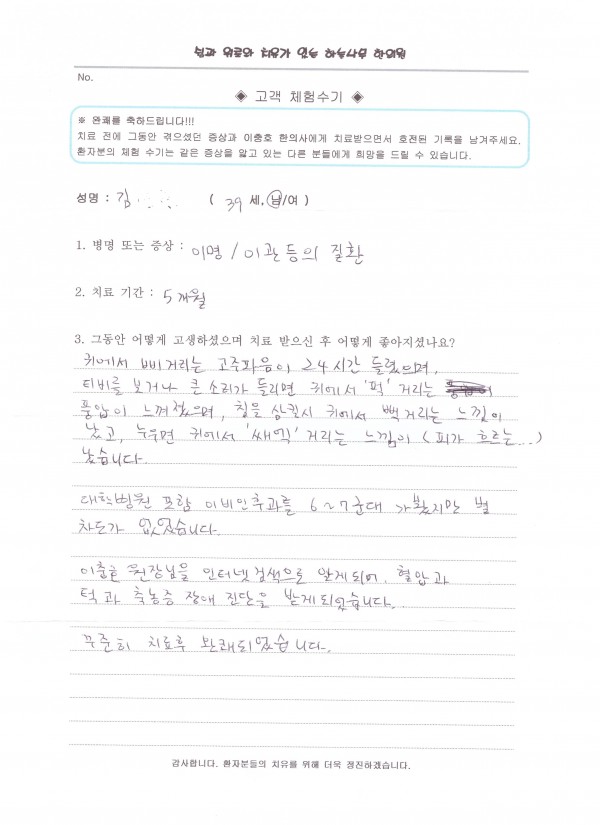 No.
◈ 고객 체험수기 ◈
※ 완쾌를 축하드립니다!!!
치료 전에 그동안 겪으셨던 증상과 이충호 한의사에게 치료받으면서 호전된 기록을 남겨주세요.
환자분의 체험 수기는 같은 증상을 앓고 있는 다른 분들에게 희망을 드릴 수 있습니다.
성명 : 김 ( 39 세, 남/여 )
1. 병명 또는 증상 : 이명 / 이관 등의 질환
2. 치료 기간 : 5개월
3. 그동안 어떻게 고생하셨으며 치료 받으신 후 어떻게 좋아지셨나요?
귀에서 삐거리는 고주파음이 24시간 들렸으며,
티비를 보거나 큰 소리가 들리면 귀에서 '퍽' 거리는
풍압이 느껴졌으며, 침을 삼킬시 귀에서 빽거리는 느낌이
났고, 누우면 귀에서 '쌔액' 거리는 느낌이 (피가 흐르는...)
났습니다.
대학병원 포함 이비인후과를 6~7군대 가봤지만 별
차도가 없었습니다.
이충호 원장님을 인터넷검색으로 알게되어, 혈압과
턱과 축농증 장애 진단을 받게되었습니다.
꾸준히 치료후 완쾌되었습니다.
감사합니다. 환자분들의 치유를 위해 더욱 정진하겠습니다.